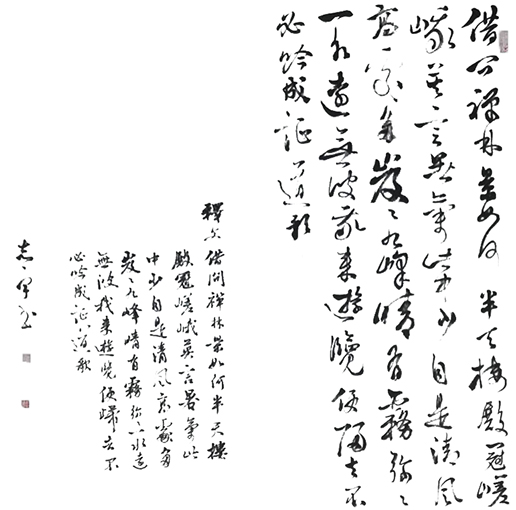 借問禪林景如何半天樓殿冠嵯
峨莫言暑氣此中少自是清風
高處多岌岌九峰晴有霧弥弥
一水遠無波我來遊覽便歸去不
必吟成証道歌
釋文借問禪林景如何半天樓
殿冠嵯峨莫言暑氣此
中少自是清風高處多
岌岌九峰晴有霧弥弥一水遠
無波我來遊覽便歸去不
必吟成証道歌